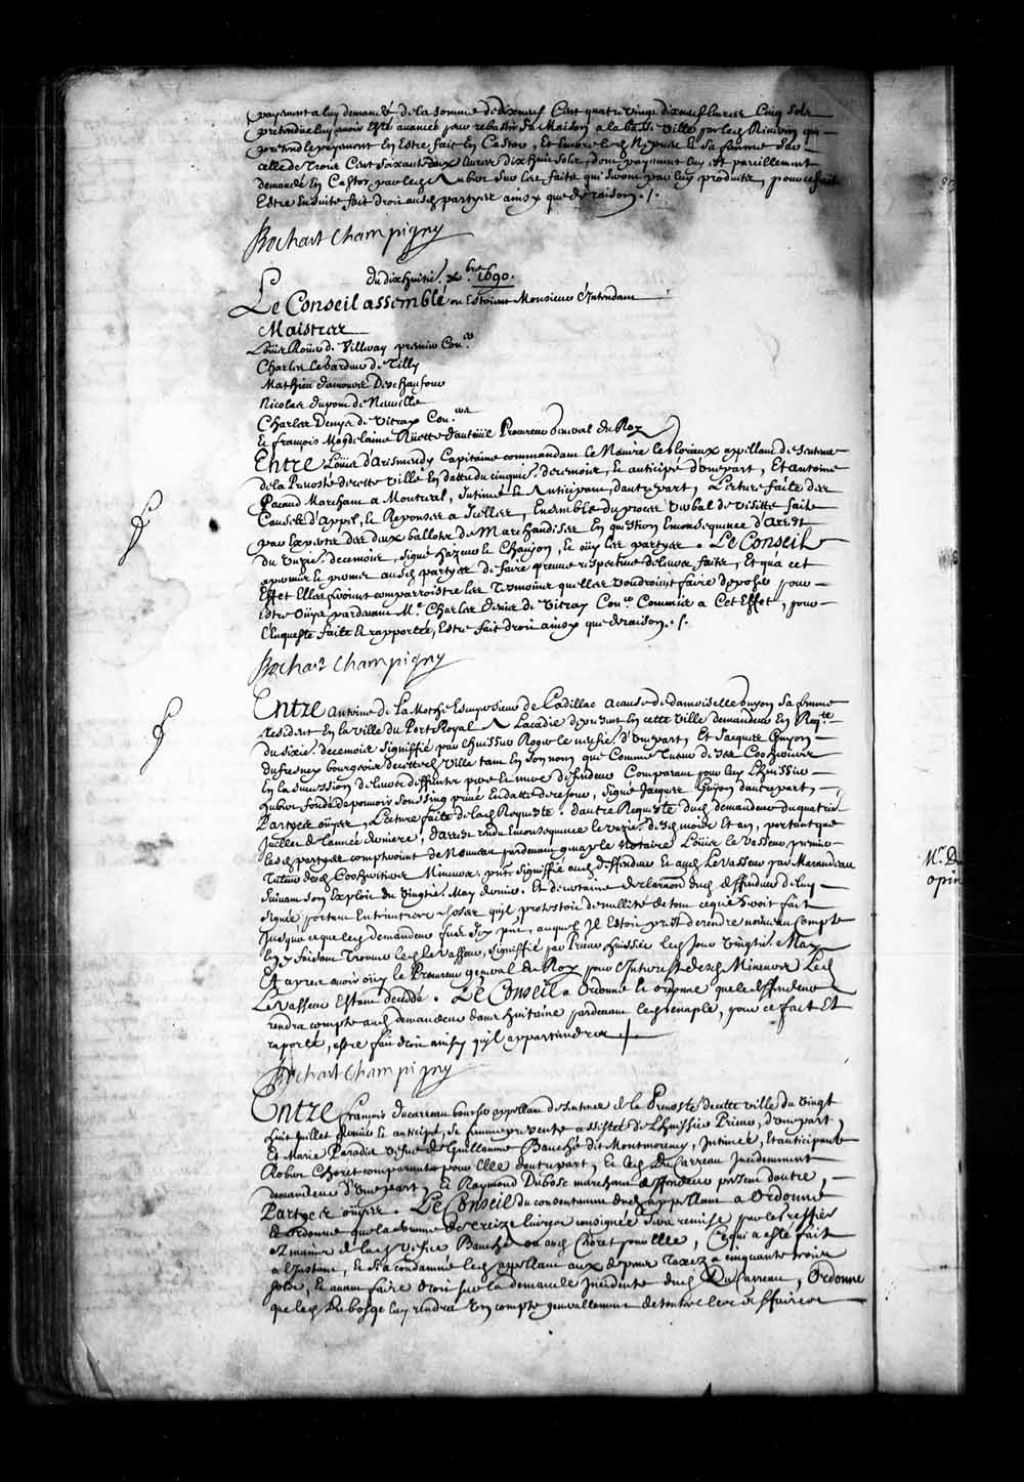 payement a luy demandé de la somme de dixneuf Cent quatre vingt dixneuf livres Cinq Sols
pretendue luy avoir esté avancée pour rebastir sa Maison a la basse ville par led
pretend le payement en Estre fait En Castor, Et Encore led
celle de Trois Cent Soixante deux livres dix huit sols, dont payement luy est pareillement
demandé En Castor par led Aubert sur les faits qui seront par luy produits, pour ce fait
Estre Ensuite fait droit ausd partyes ainsy que de raison ./.
Bochart Champigny
du dixhuitie. xbre 1690.
Le Conseil assemblé ou Estoient Monsieur l'Intendant
Maistres
Loüis Roüer de Villeray premier Coner
Charles Legardeur de Tilly
Mathieu damours Deschaufour
Nicolas dupont de Neuville
Charles Denys de Vitray Coners
Et françois Magdelaine Rüette d'auteüil Procureur General du Roy
Entre Loüis d'Arismendy Capitaine commandant le Navire le Glorieux appellant de Sentence
de la Prevosté de cette ville En datte du cinquie. decembre, Et anticipé d'une part, Et Antoine
Pacaud Marchant a Montreal, Intimé Et Anticipant, d'autre part, Lecture faite des
Causes d'Appel, Et Reponses a Icelles, Ensemble du procez Verbal de Visitte faite
par Experts des deux ballots de Marchandises En question En consequence d'Arest
du unzie. decembre, signé hazeur Et Chanjon, Et oüy les partyes. Le Conseil
a permis Et permet ausd partyes de faire preuve respective de leurs faits, Et qu'a cet
Effet Elles feront comparroistre les Temoins quelles voudront faire deposer pour
Estre Oüys pardevant Me Charles Denis de Vitray Coner Commis a Cet Effet, pour
l'Enqueste faite Et rapportée, Estre fait droit ainsy que de raison ./.
Bochart Champigny
Entre Antoine de la Mothe Escuyer sieur de Cadillac a cause de damoiselle Guyon sa femme
resident En la ville du Port Royal A Lacadie de present En cette ville demandeur En Reqte
du sixie. decembre signiffié par l'huissier Roger le mesme . d'Une part, Et Jacques Guyon
dufresnay bourgeois de cette ville tant En son nom que Comme Tuteur de ses Cohoiries
En la Succession de leurs deffunts pere Et mere deffendeur Comparant pour luy l'huissier
hubert fondé de pouvoir Sous Sing privé En datte de ce jour, signé Jacques Guyon d'autre part,
Partyes oüyes, Lecture faite de lad Requeste . d'autre Requeste dud demandeur du quatrie.
Juillet de l'année derniere, d'arrest rendu En consequence le unzie. desd mois Et an, portant que
lesd partyes compteroient de Nouveau pardevant genaple Notaire Loüis le Vasseur premier
Tuteur desd Cohoiritiers Mineurs, present signiffié aud deffendeur Et aud LeVasseur par Marandeau
Suivant son Exploit du Vingtie. May dernier . Et de certaine declaration dud deffendeur de luy
signée portant Entr'autres choses qu'il protestoit de nullité de tout ce qui Seroit fait
Jusque a ce que led demandeur fust Icy present, auquel Il Estoit prest de rendre nouveau compte
En y faisant Trouver led le Vasseur, signiffié par Prieur huissier led Jour Vingtie. May
Et apres avoir oüy le Procureur general du Roy pour l'Interest desd Mineurs Led
LeVasseur Estant deceddé . Le Conseil a Ordonné Et ordonne que le deffendeur
rendra compte aud demandeur dans huitaine pardevant led genaple, pour ce fait Et
raporté, estre fait droit ainsy qu'il appartiendra
Bochart Champigny
Entre françois ducarreau bourgs appellant de Sentence de la Prevosté de cette ville du Vingt
huit Juillet dernier Et anticipé, sa femme presente assistée de l'huissier Prieur, d'une part,
Et Marie Paradis vefve de Guillaume Bauché dit Montmorency, Intimée, Et anticipante
Robert Choret comparant pour Elle d'autre part, Et led duCarreau Incidemment
demandeur d'une part, Et Raymond Dubosc marchant deffendeur present d'autre,
Partyes oüyes . Le Conseil du consentement dud appellant a Ordonné
Et ordonne que la somme de treize livres consignée Sera remise par le greffier
Es mains de lad vefve Bauché ou aud Choret pour Elle, Ce qui a esté fait
a l'Instant, Et l'a condamné led appellant aux depens Taxez a cinquante trois
sols, Et avant faire droit sur la demande Incidente dud Ducarreau, Ordonne
que led Dubosqc luy rendra Un compte generallement de toutes les affaires
Mr. D
opin